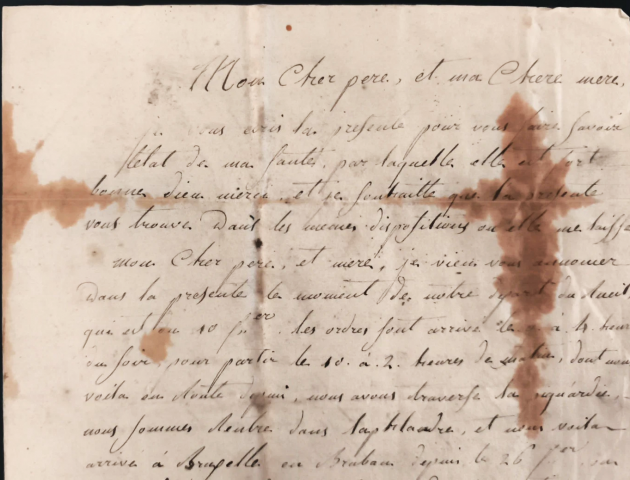 Mon Cher pere, et ma Chere mere,
je vous ecris la presente pour vous faire savoir
letat de ma santé, par laquelle elle est fort
bonne dieu merci et je souhaitte que la presente
vous trouve dans les memes dispositions ou elle me laisse
mon Cher pere, et mere, je vien vous annoncer
Dans la presente le moment De notre depart
qui est au 10 les ordres sont arrivé le à 4 heur
du soir, pour partir le 10. à 2. heures de matin, dont nous
voila en route depui, nous avons traversé la
nous sommes Rentre dans et nous voila
arrive à Bruxelle en Braban depuis le 26